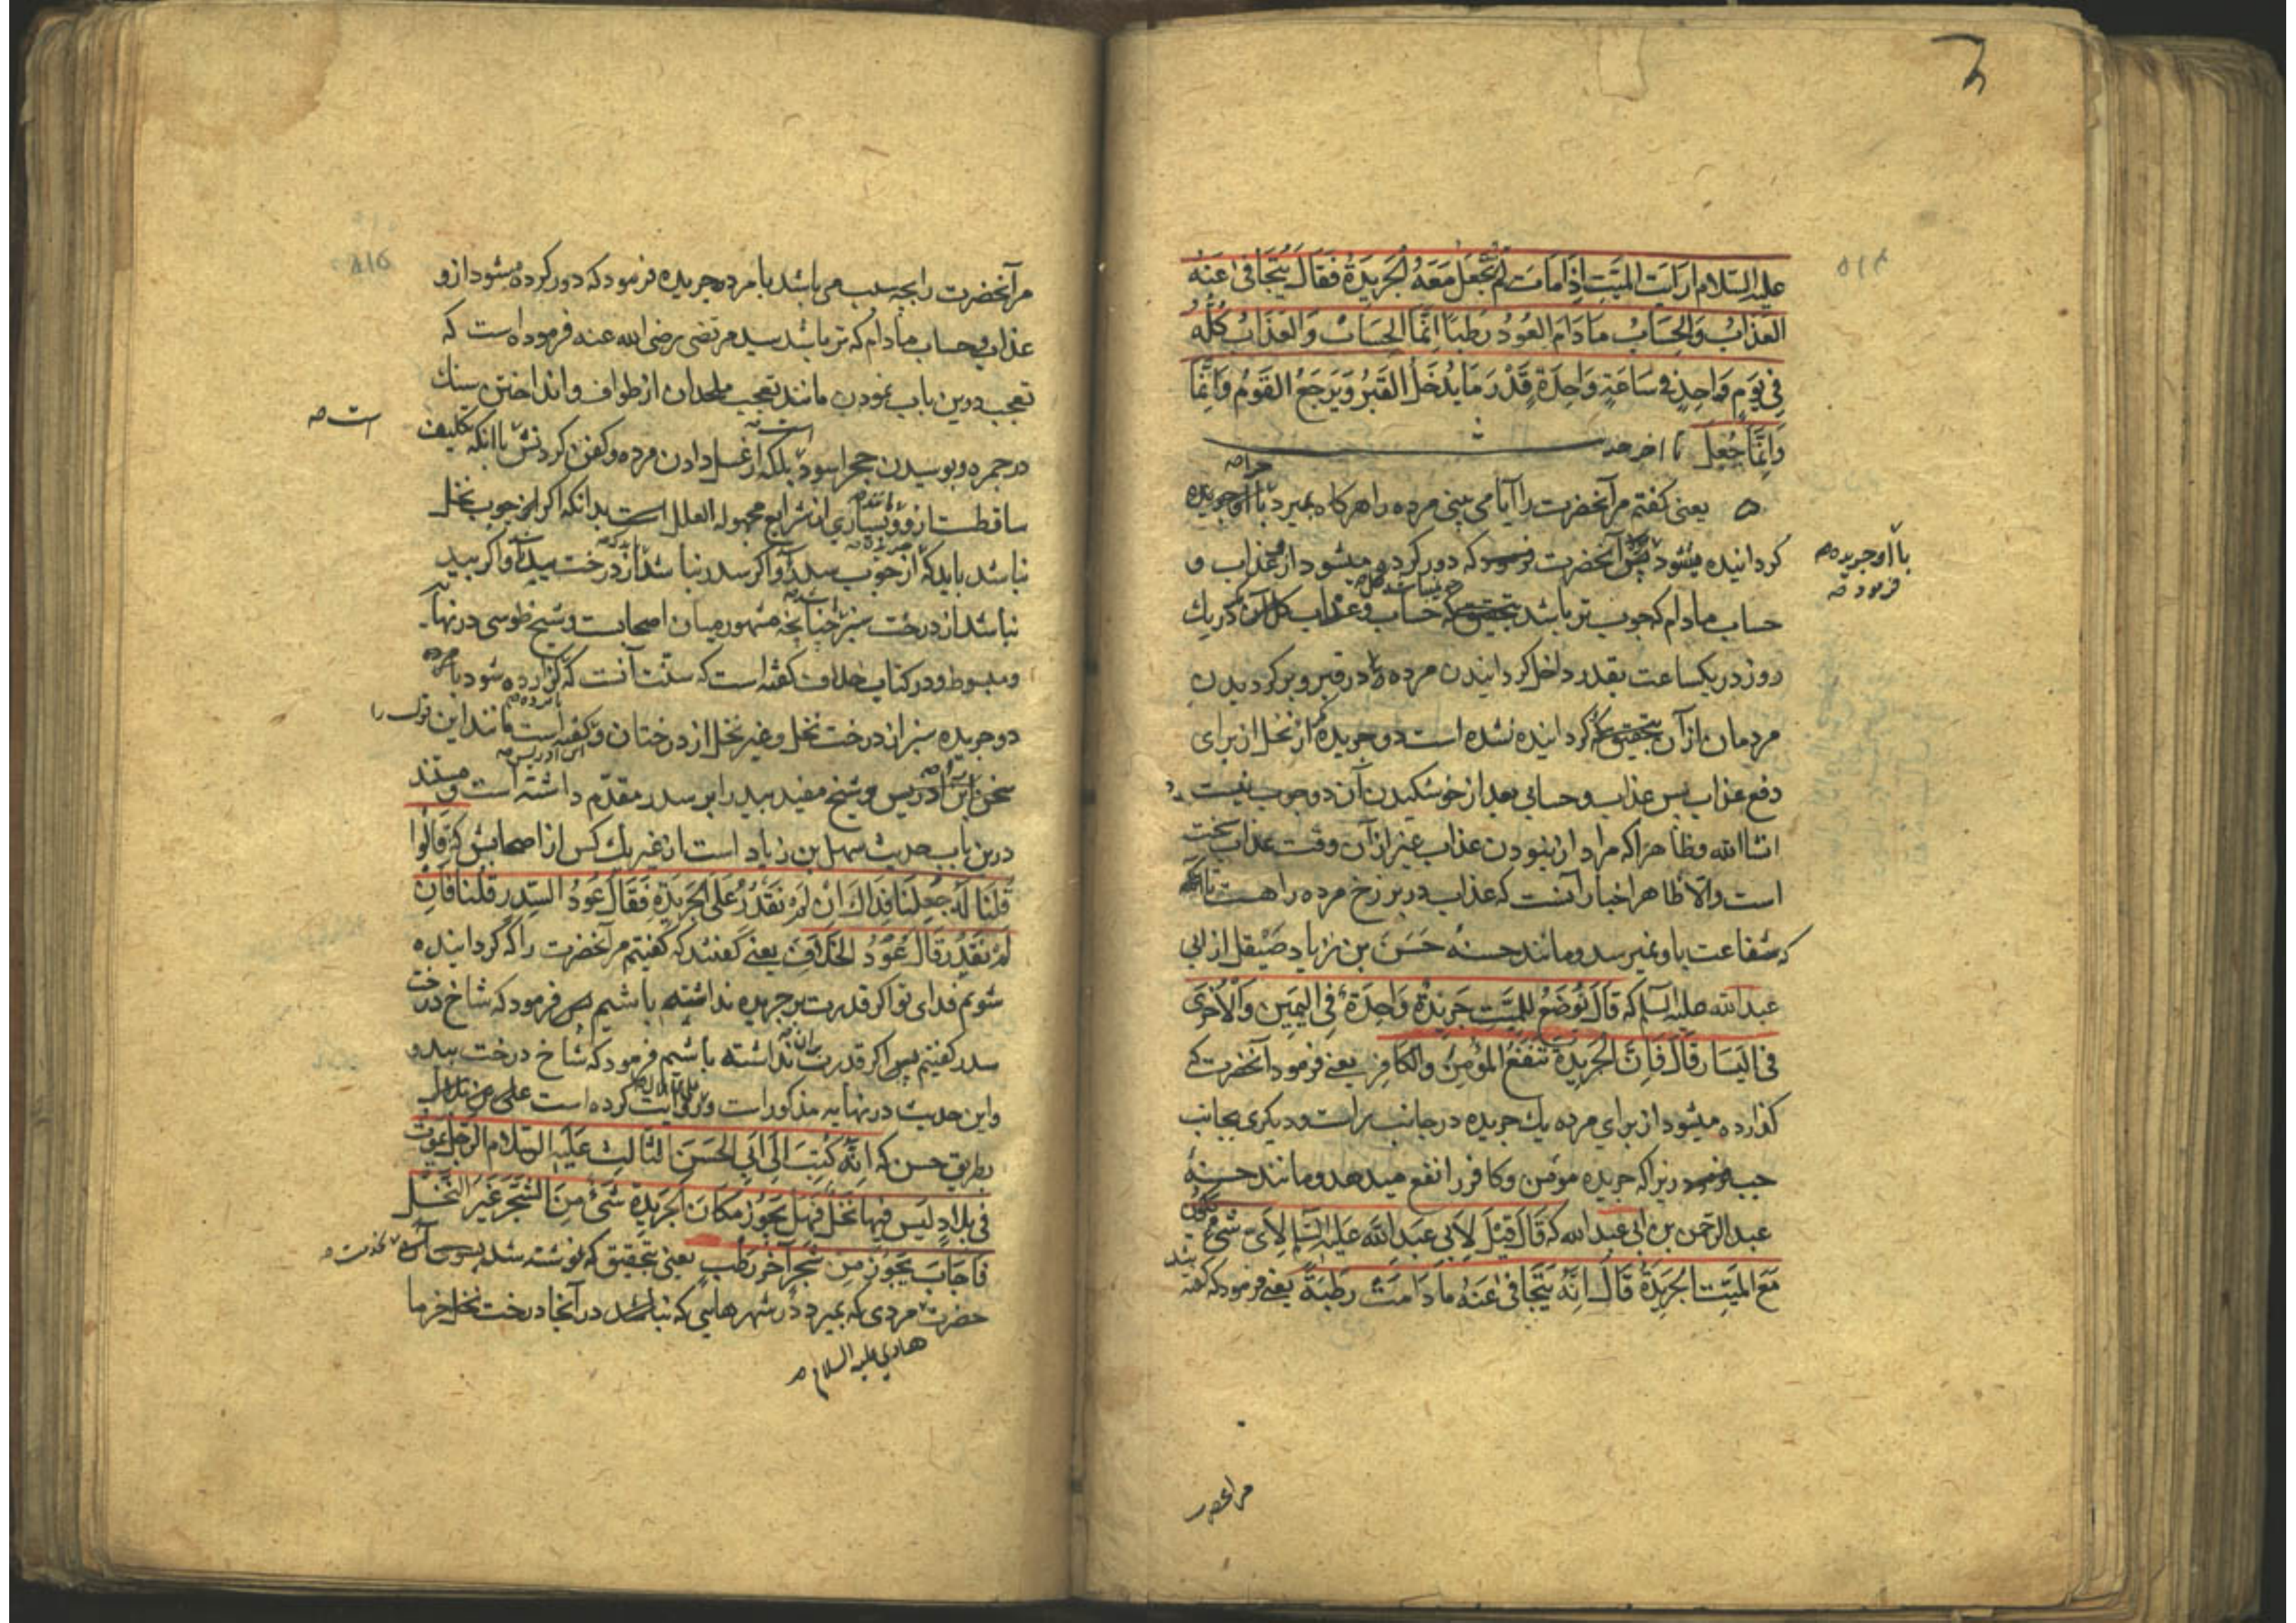 علیه السلام ارایت المیت اذا مات لم تجعل معه الجریدة فقال یتجافی عنه
العذاب والحساب مادام العود رطبا انما الحساب والعذاب کله
فی یوم واحد فی ساعة واحدة قدر ما یدخل القبر ویرجع القوم وانما
وانما جعل تا اخر حد
یعنی کفتم مر آنحضرت را آیا می بینی مرده را هر کاه بمیرد چرا با او جریده
کردانیده میشود پس آنحضرت فرمود که دور کرده میشود از و عذاب و
با او جریده
فرمود
حساب مادام که چوب تر باشد حساب و عذاب کل آن در یک
روز در یکساعت بقدر داخل کردانیدن مرده در قبر و برکردیدن
مردمان از آن بتحقیق که کردانیده نشده است دو جریده از نخل از برای
دفع عذاب پس عذاب و حسابی بعد از خوشکیدن آن دو چوب نیست
انشا الله وظاهرا که مراد از نبودن عذاب غیر از آن وقت عذاب سخت
است والا ظاهر اخبار آنست که عذاب در برزخ مرده را هست
که شفاعت باو نمیرسد ومانند حسنه حسن بن زیاد صیقل از ابی
عبد الله علیه السلام که قال توضع للمیت جریدة واحدة فی الیمین والاخری
فی الیسار قال فان الجریدة تنفع المؤمن والکافر یعنی فرمود آنحضرت که
کذارده میشود از برای مرده یک جریده در جانب راست و دیکری بجانب
چپ فرمود زیرا که جریده مومن وکافر را نفع میدهد ومانند حسنه
عبد الرحمن بن ابی عبد الله که قال قیل لابی عبد الله علیه السلام لای شیء تکون
مع المیت الجریدة قال انه یتجافی عنه مادامت رطبة یعنی فرمود که کفته شد
مر آنحضرت
مر آنحضرت را بچه سبب می باشد با مرده جریده فرمود که دور کرده میشود از و
عذاب و حساب مادام که تر باشد سید مرتضی رضی الله عنه فرموده است که
تعجب درین باب نمودن مانند تعجب ملحدان از طواف و انداختن سنک
در جمره و بوسیدن حجر اسود است بلکه از غسل دادن مرده و کفن کردنش با انکه تکلیف
است
ساقطست از و و بسیاری از شرایع مجهولة العلل است بدانکه اکر چوب نخل
نباشد باید که از چوب سدر و اکر سدر نباشد از درخت بید و اکر بید
نباشد از درخت سبز چنانچه مشهور میان اصحابست و شیخ طوسی در نهایه
ومبسوط و در کتاب خلاف کفته است که سنت آنست که کزارده شود با مرده
دو جریده سبز از درخت نخل وغیر نخل از درختان و کفته است مانند این قول را
ابن ادریس
سخن ابن ادریس و شیخ مفید بید را بر سدر مقدم داشته است و مستند
درین باب حدیث سهل بن زیاد است از غیر یک کس از اصحابش که قالوا
قلنا له جعلنا فداک ان لم نقدر علی الجریدة فقال عود السدر قلنا فان
لم نقدر قال عود الخلاف یعنی کفتند که کفتیم مر آنحضرت را که کردانیده
شویم فدای تو اکر قدرت بر جریده نداشته باشیم پس فرمود که شاخ درخت
سدر کفتیم پس اکر قدرت بر آن نداشته باشیم فرمود که شاخ درخت بید و
واین حدیث در نهایه مذکور است و روایت کرده است علی بن بلال
بطریق حسن که انه کتب الی ابی الحسن الثالث علیه السلام الرجل یموت
فی بلاد لیس فیها نخل فهل یجوز مکان الجریدة شیء من الشجر غیر النخل
فاجاب یجوز من شجر آخر رطب یعنی بتحقیق که نوشته شد بسوی آن
حضرت مردی که بمیرد در شهرهایی که نباشد در آنجا درخت نخل خرما
هادی علیه السلام